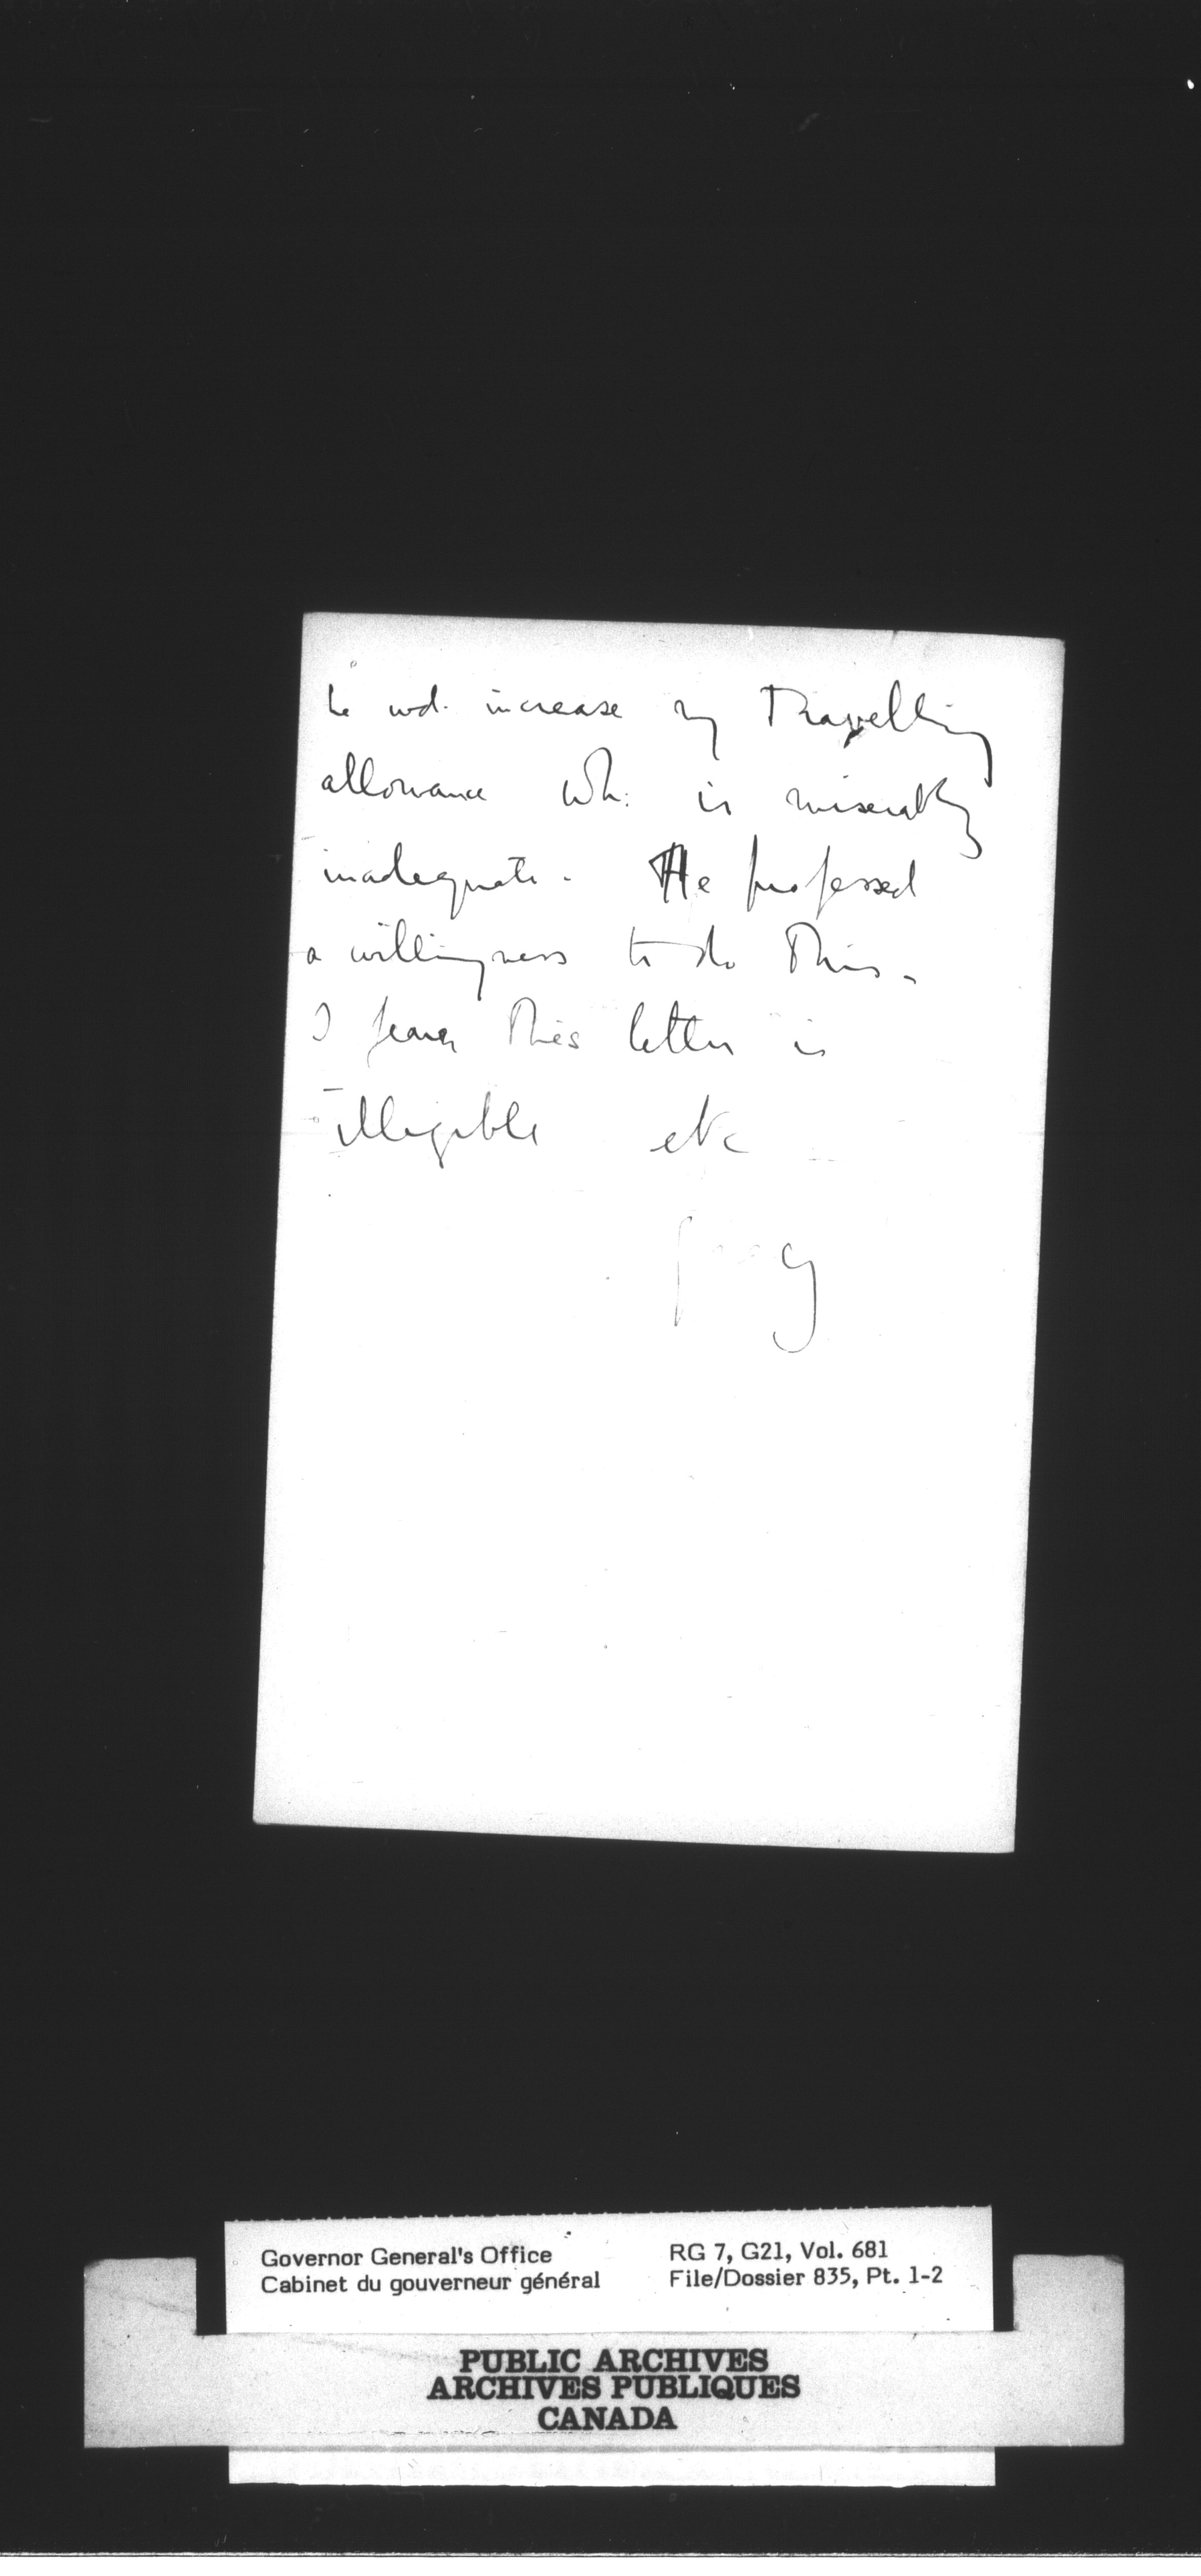 he wd. increase my Travelling
allowance wh: is miserably
inadequate. He professed
a willingness to do This.
I fear This letter is
illegible etc
Governor General's Office
Cabinet du gouverneur général
RG 7, G21, Vol. 681
File/Dossier 835, Pt. 1-2
PUBLIC ARCHIVES
ARCHIVES PUBLIQUES
CANADA